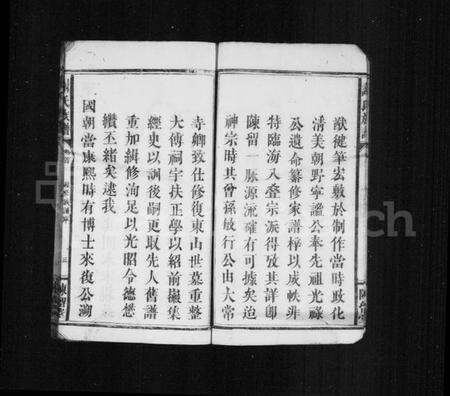 猷健筆宏敷於制作當時政化
清美朝野寧謐公奉先祖光祿
公遺命纂修家譜梓以成帙非
特臨海入叠宗派得攷其詳即
陳留一脉源流確有可據矣迨
神宗時其曾孫敏行公由大常
寺卿致仕修復東山世墓重整
大傅祠宇扶正學以紹前徽集
經史以訓後嗣更取先人舊譜
重加緝修洵足以光昭令德懋
纘丕緒矣逮我
國朝當康熙時有博士來復公溯
陳留堂
MyHeritage